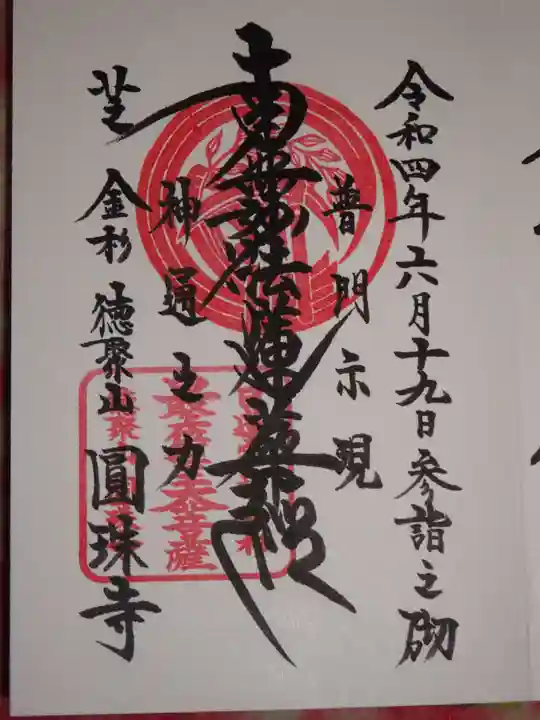 令和四年六月十九日参詣之砌
普門示現
南無妙法蓮華経
神通之力
芝金杉徳聚山圓珠寺